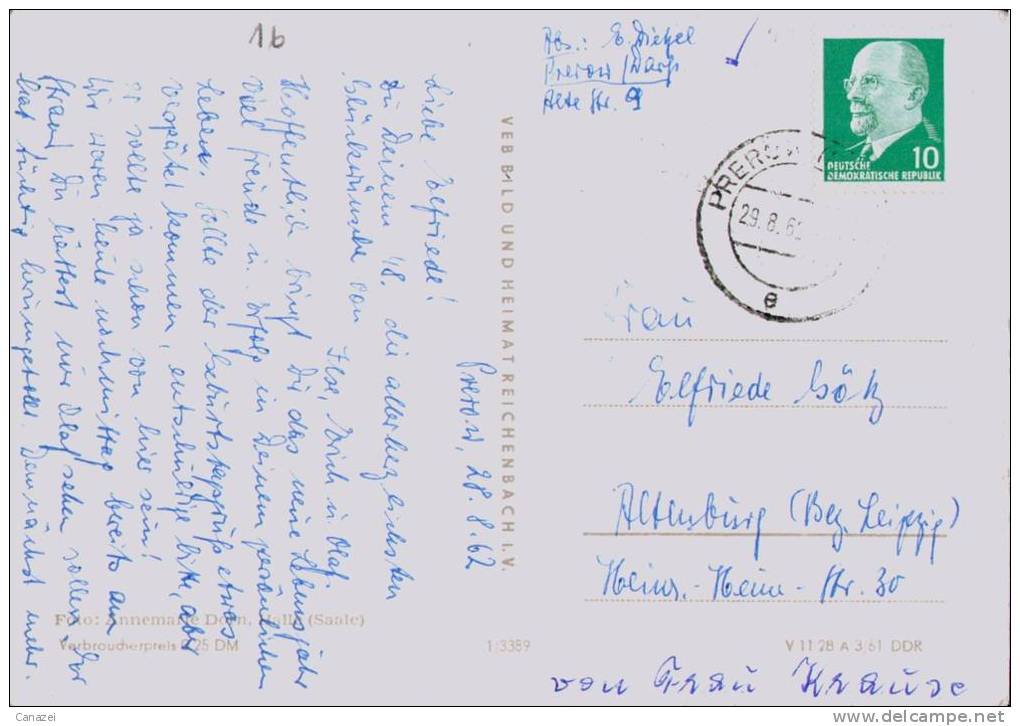 16
Abs.: E. Dietzel
Prerow/Darß
Alte Str. 9
DEUTSCHE
DEMOKRATISCHE REPUBLIK
10
PREROW
29.8.62
e
Prerow, 28.8.62
Liebe Elfriede!
Zu Deinem 48. die allerherzlichsten
Glückwünsche von
Ilse, Erich u. Olaf.
Hoffentlich bringt Dir das neue Lebensjahr
viel Freude u. Erfolg in Deinem persönlichen
Leben. Sollte der Geburtstagsgruß etwas
verspätet kommen, entschuldige bitte, aber
er sollte ja schon von hier sein!
Wir waren heute nachmittag bereits am
Strand. Du hättest nur Olaf sehen sollen, der
hat tüchtig herumgetollt. Demnächst mehr.
VEB BILD UND HEIMAT REICHENBACH I.V.
Frau
Elfriede Götz
Altenburg (Bez. Leipzig)
Heinr.-Heine-Str. 30
Foto: Annemarie Dorn, Halle (Saale)
Verbraucherpreis 0,25 DM
1/3389
V 11 28 A 3/61 DDR
von Frau Krause
Canazei
©www.delcampe.net